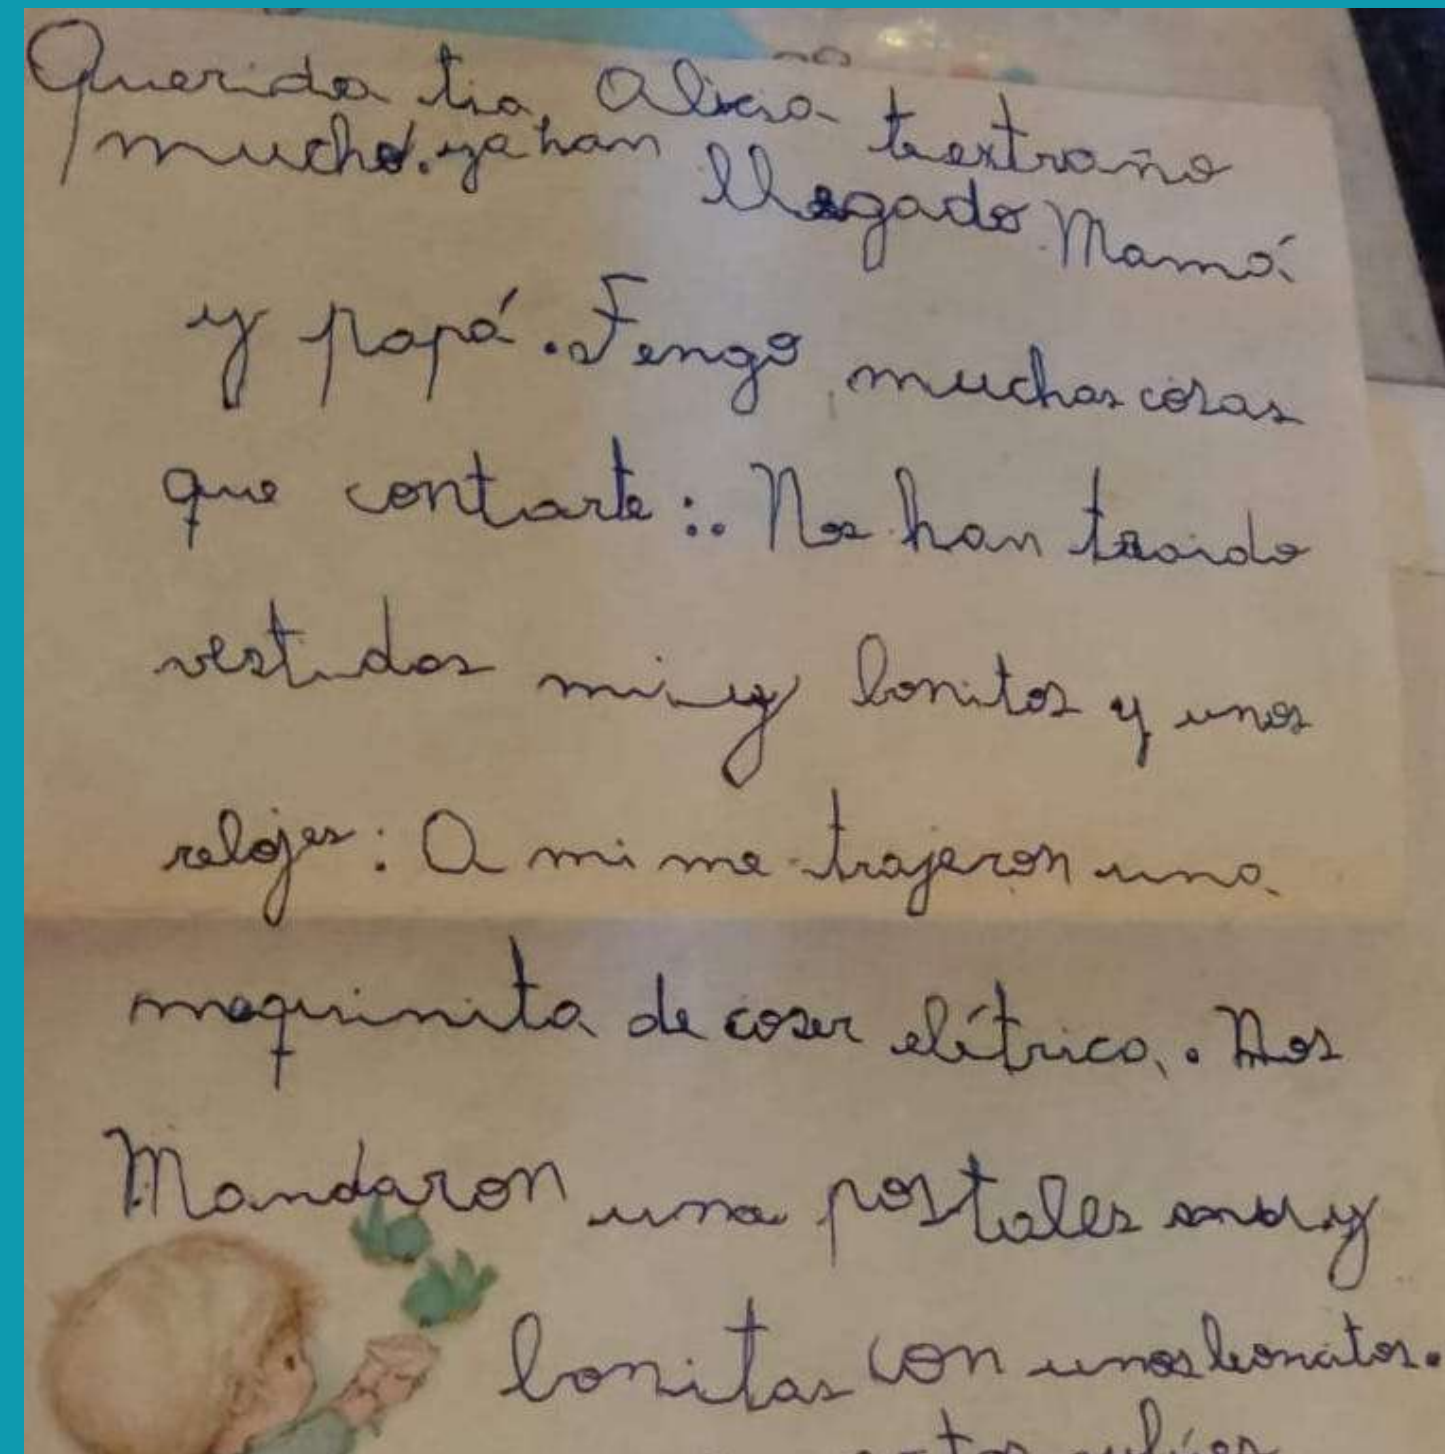 Querida tia Alicia te extraño
mucho. ya han llegado Mamá
y papá. Tengo muchas cosas
que contarte:. Nos han traido
vestidos muy bonitos y unos
relojes: A mi me trajeron una
maquinita de coser elétrica. Nos
Mandaron una postales muy
bonitas con unos leoncitos.